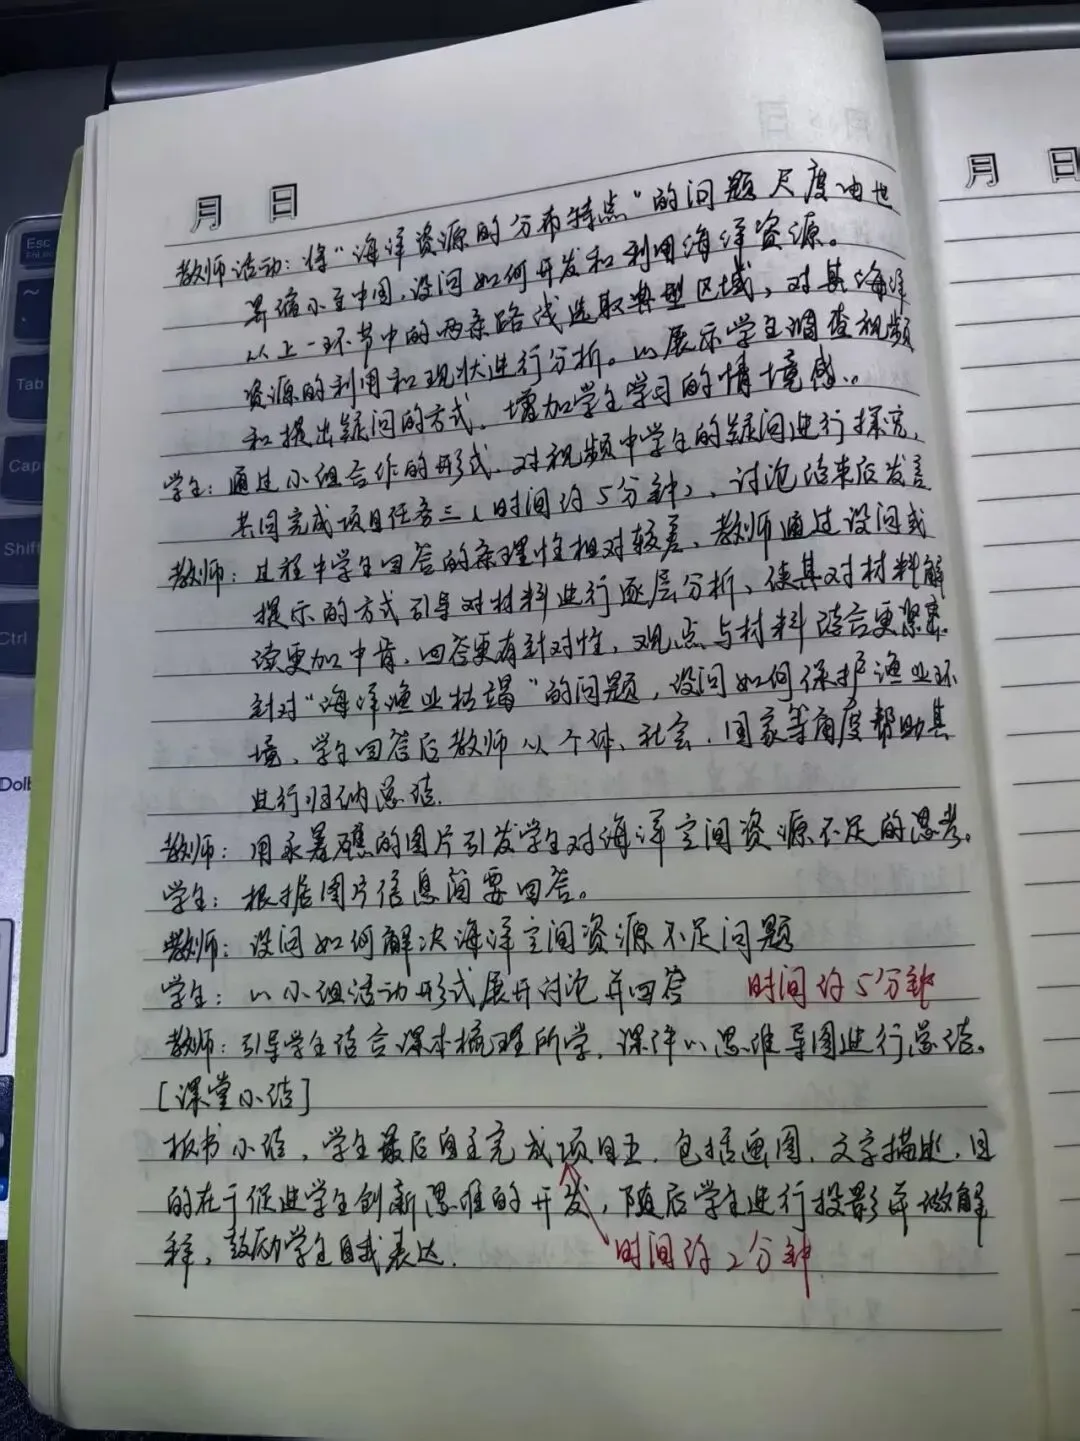 月 日
月 日
教师活动：将“海洋资源的分布特点”的问题尺度由世
界缩小至中国，设问如何开发和利用海洋资源。
以上一环节中的两条路线选取典型区域，对其海洋
资源的利用和现状进行分析。以展示学生调查视频
和提出疑问的方式，增加学生学习的情境感。
学生：通过小组合作的形式，对视频中学生的疑问进行探究，
共同完成项目任务三（时间约5分钟），讨论结束后发言
教师：过程中学生回答的条理性相对较差，教师通过设问或
提示的方式引导对材料进行逐层分析，使其对材料解
读更加中肯，回答更有针对性，观点与材料结合更紧密
针对“海洋渔业枯竭”的问题，设问如何保护渔业环
境，学生回答后教师从个体、社会、国家等角度帮助其
进行归纳总结．
教师：用永暑礁的图片引发学生对海洋空间资源不足的思考。
学生：根据图片信息简要回答。
教师：设问如何解决海洋空间资源不足问题
学生：以小组活动形式展开讨论并回答 时间约5分钟
教师：引导学生结合课本梳理所学，课件以思维导图进行总结。
[课堂小结]
板书小结，学生最后自主完成项目五，包括画图、文字描述，目
的在于促进学生创新思维的开发，随后学生进行投影并做解
释，鼓励学生自我表达． 时间约2分钟
Esc
Tab
Cap
Shift
Ctrl
Dolb